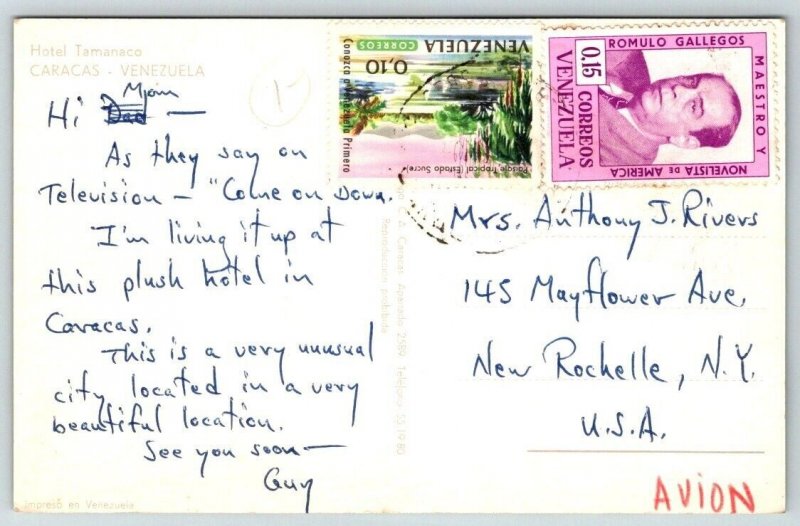 Hotel Tamanaco
CARACAS - VENEZUELA
Mom
Hi Dad —
As they say on
Television — "Come on Down.
I'm living it up at
this plush hotel in
Caracas.
This is a very unusual
city located in a very
beautiful location.
See you soon —
Guy
Impreso en Venezuela
C. A. Caracas Apartado 2589 Telefono 55.19.80
Reproduccion prohibida
VENEZUELA
CORREOS
0,10
Conozca a Venezuela Primero
Paisaje Tropical (Estado Sucre)
ROMULO GALLEGOS
MAESTRO Y
NOVELISTA DE AMERICA
0,15
CORREOS
VENEZUELA
Mrs. Anthony J. Rivers
145 Mayflower Ave.
New Rochelle, N.Y.
U.S.A.
AVION